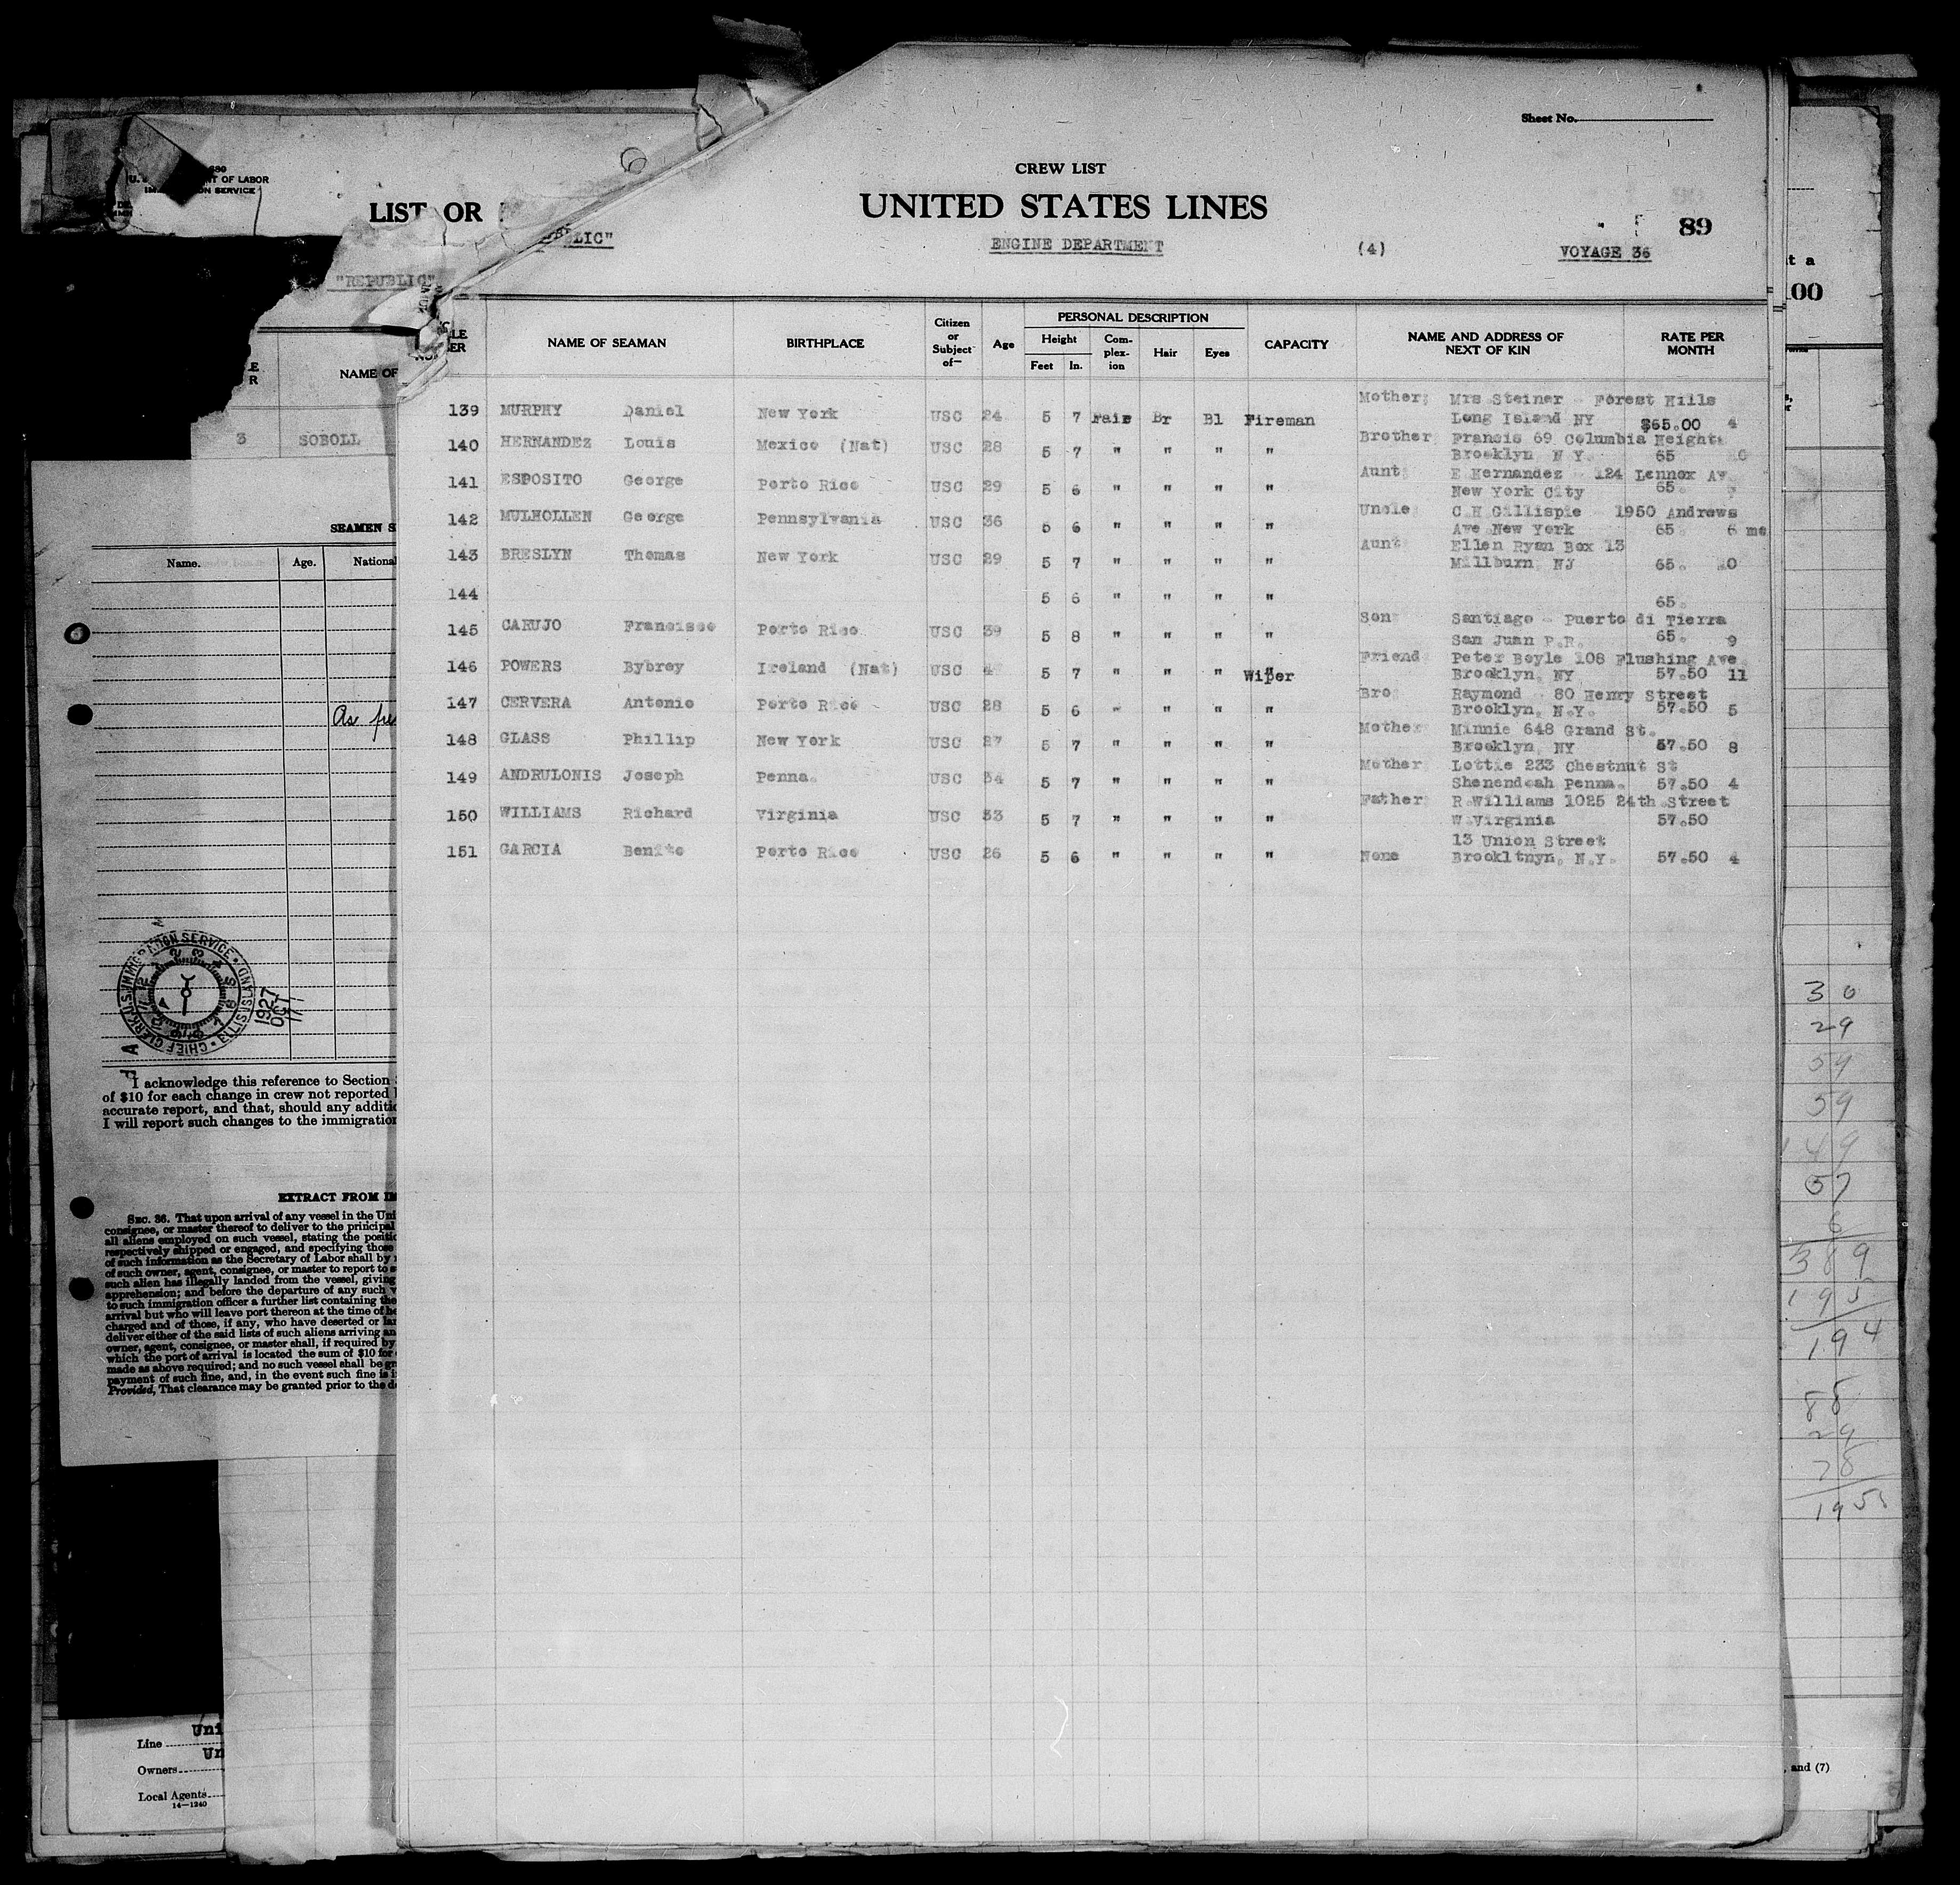 Sheet No.
CREW LIST
UNITED STATES LINES
89
ENGINE DEPARTMENT (4) VOYAGE 36
NAME OF SEAMAN BIRTHPLACE Citizen or Subject of— Age PERSONAL DESCRIPTION CAPACITY NAME AND ADDRESS OF NEXT OF KIN RATE PER MONTH
Height Complexion Hair Eyes
Feet In.
Mother; Mrs Steiner Forest Hills
139 MURPHY Daniel New York USC 24 5 7 Fair Br Bl Fireman Long Island NY $65.00 4
140 HERNANDEZ Louis Mexico (Nat) USC 28 5 7 " " " " Brother Francis 69 Columbia Heights
Brooklyn N Y. 65
141 ESPOSITO George Porto Rico USC 29 5 6 " " " " Aunt E Hernandez 124 Lennox Av.
New York City 65.
142 MULHOLLEN George Pennsylvania USC 36 5 6 " " " " Uncle C H Gillispie 1950 Andrews
Ave New York 65. 6 mo
143 BRESLYN Thomas New York USC 29 5 7 " " " " Aunt Ellen Ryan Box 13
Millburn, NJ 65.
144 5 6 " " " " 65.
145 CARUJO Francisco Porto Rico USC 39 5 8 " " " " Son Santiago - Puerto di Tierra
San Juan P.R. 65. 9
146 POWERS Bybrey Ireland (Nat) USC 5 7 " " " Wiper Friend Peter Boyle 108 Flushing Ave.
Brooklyn, NY 57.50 11
147 CERVERA Antonio Porto Rico USC 28 5 6 " " " " Bro Raymond 80 Henry Street
Brooklyn, N.Y. 57.50 5
148 GLASS Phillip New York USC 27 5 7 " " " " Mother Minnie 648 Grand St.
Brooklyn, NY 57.50 8
149 ANDRULONIS Joseph Penna. USC 34 5 7 " " " " Mother Lottie 233 Chestnut St
Shenendeah Penna. 57.50 4
150 WILLIAMS Richard Virginia USC 33 5 7 " " " " Father R.Williams 1025 24th Street
W.Virginia 57.50
13 Union Street
151 GARCIA Benito Porto Rico USC 26 5 6 " " " " None Brookltnyn, N.Y. 57.50 4
LIST OR
"REPUBLIC"
NAME OF
3 SOBOLL
Name. Age.
As per
CHIEF CLERK, U.S. IMMIGRATION SERVICE • ELLIS ISLAND
1927 OCT 11
I acknowledge this reference to Section
of $10 for each change in crew not reported
accurate report, and that, should any
I will report such changes to the
EXTRACT FROM
SEC. 36. That upon arrival of any vessel in the
consignee, or master thereof to deliver to the principal
all aliens employed on such vessel, stating the
respectively shipped or engaged, and specifying those
of such information as the Secretary of Labor shall by
of such owner, agent, consignee, or master to report to
such alien has illegally landed from the vessel, giving
apprehension; and before the departure of any such
to such immigration officer a further list containing the
arrival but who will leave port thereon at the time of
charged and of those, if any, who have deserted or
deliver either of the said lists of such aliens arriving
owner, agent, consignee, or master shall, if required by
which the port of arrival is located the sum of $10 for
made as above required; and no such vessel shall be
payment of such fine, and, in the event such fine is
Provided, That clearance may be granted prior to the
Line
Owners
Local Agents
14—1240
30
29
59
59
149
57
6
389
195
194
88
29
78
195
, and (7)